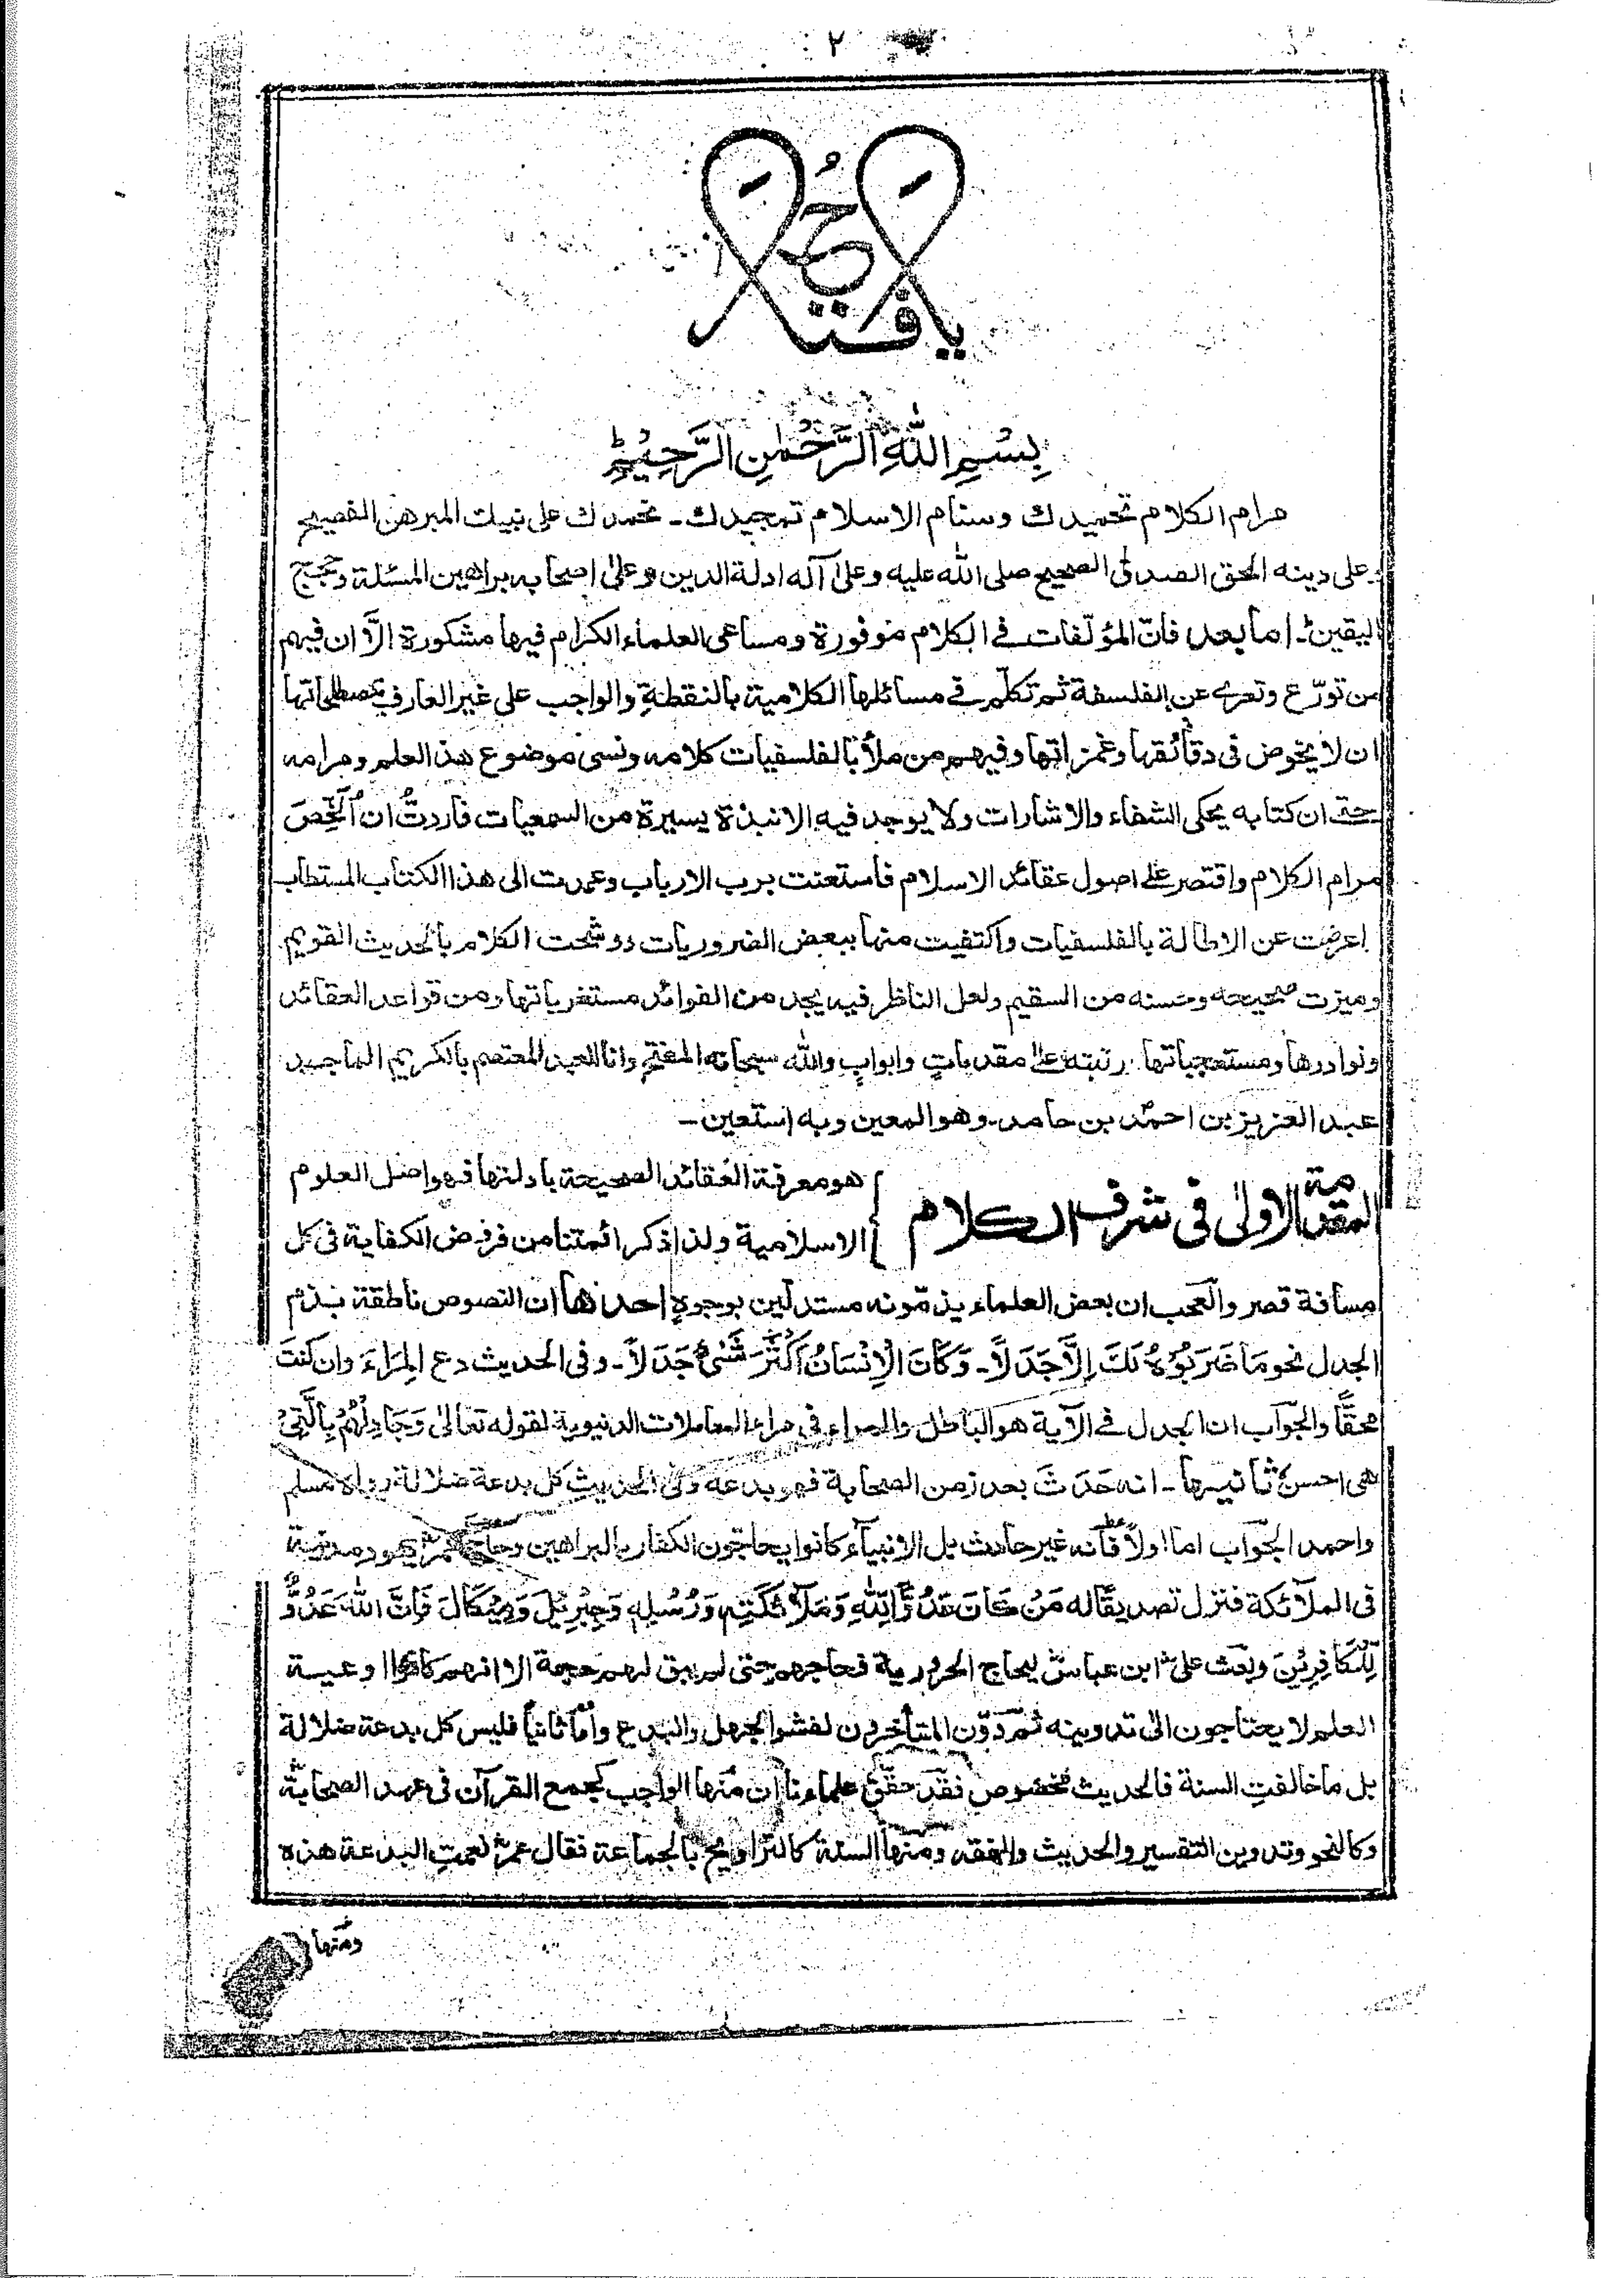 ٢
يا فتاح
بِسْمِ اللّٰهِ الرَّحْمٰنِ الرَّحِيْمِ
مرام الكلام تحميدك وسنام الاسلام تمجيدك ـ نحمدك على نبيك المبرهن الفصيح
على دينه الحق الصدق الصحيح صلى الله عليه وعلى آله ادلة الدين وعلى اصحابه براهين المسئلة وحجج
اليقين ـ اما بعد فانّ المؤلّفات فى الكلام موفورة ومساعى العلماء الكرام فيها مشكورة الّا ان فيهم
من تورّع وتعرى عن الفلسفة ثم تكلّم فى مسائلها الكلامية بالنقطة والواجب على غير العارف بمصطلحاتها
ان لا يخوض فى دقائقها وغمزاتها وفيهم من ملأ بالفلسفيات كلامه ونسى موضوع هذا العلم ومرامه
حتى ان كتابه يحكى الشفاء والاشارات ولا يوجد فيه الا نبذة يسيرة من السمعيات فاردتُّ ان اُلَخِّصَ
مرام الكلام واقتصر على اصول عقائد الاسلام فاستعنت برب الارباب وعمدت الى هذا الكتاب المستطاب
اعرضت عن الاطالة بالفلسفيات واكتفيت منها ببعض الضروريات ووشحت الكلام بالحديث القويم
وميزت صحيحه وحسنه من السقيم ولعل الناظر فيه يجد من الفوائد مستغرباتها ومن قواعد العقائد
ونوادرها ومستعجباتها رتبته على مقدمات وابواب والله سبحانه المفتح وانا العبد المعتصم بالكريم الماجد
عبد العزيز بن احمد بن حامد ـ وهو المعين وبه استعين ـ
المقدمة الاولى فى شرف الكلام
هو معرفة العقائد الصحيحة بادلتها فهو اصل العلوم
الاسلامية ولذا ذكر ائمتنا من فرض الكفاية فى كل
مسافة قصر والعجب ان بعض العلماء يذمّونه مستدلّين بوجوه احدها ان النصوص ناطقة بذم
الجدل نحو مَا ضَرَبُوْهُ لَكَ اِلَّا جَدَلًا ـ وَكَانَ الْاِنْسَانُ اَكْثَرَ شَىْءٍ جَدَلًا ـ وفى الحديث دع المِرَاءَ وان كنتَ
محقًّا والجواب ان الجدل فى الآية هو الباطل والمراء فى مراء المعاملات الدنيوية لقوله تعالى وَجَادِلْهُمْ بِالَّتِىْ
هى احسن ثانيها ـ انه حَدَثَ بعد زمن الصحابة فهو بدعه وفى الحديث كل بدعة ضلالة رواه مسلم
واحمد الجواب اما اولاً فانه غير حادث بل الانبياء كانوا يحاجّون الكفار بالبراهين وحاج عمر يهود مدينة
فى الملائكة فنزل تصديقًا له مَنْ كَانَ عَدُوًّا لِلّٰهِ وَمَلَآئِكَتِهٖ وَرُسُلِهٖ وَجِبْرِيْلَ وَمِيْكَالَ فَاِنَّ اللّٰهَ عَدُوٌّ
لِّلْكَافِرِيْنَ وبعث علىؓ ابن عباسؓ ليحاج الحرورية فحاجهم حتى لم يبق لهم حجة الا انهم كانوا اوعية
العلم لا يحتاجون الى تدوينه ثم دوّن المتأخرون لفشو الجهل والبدع وامّا ثانيًا فليس كل بدعة ضلالة
بل ما خالفت السنة فالحديث مخصوص فقد حقّق علماءنا ان منها الواجب كجمع القرآن فى عهد الصحابةؓ
وكالنحو وتدوين التفسير والحديث والفقه ومنها السنة كالتراويح بالجماعة فقال عمرؓ نعمت البدعة هذه
ومنها